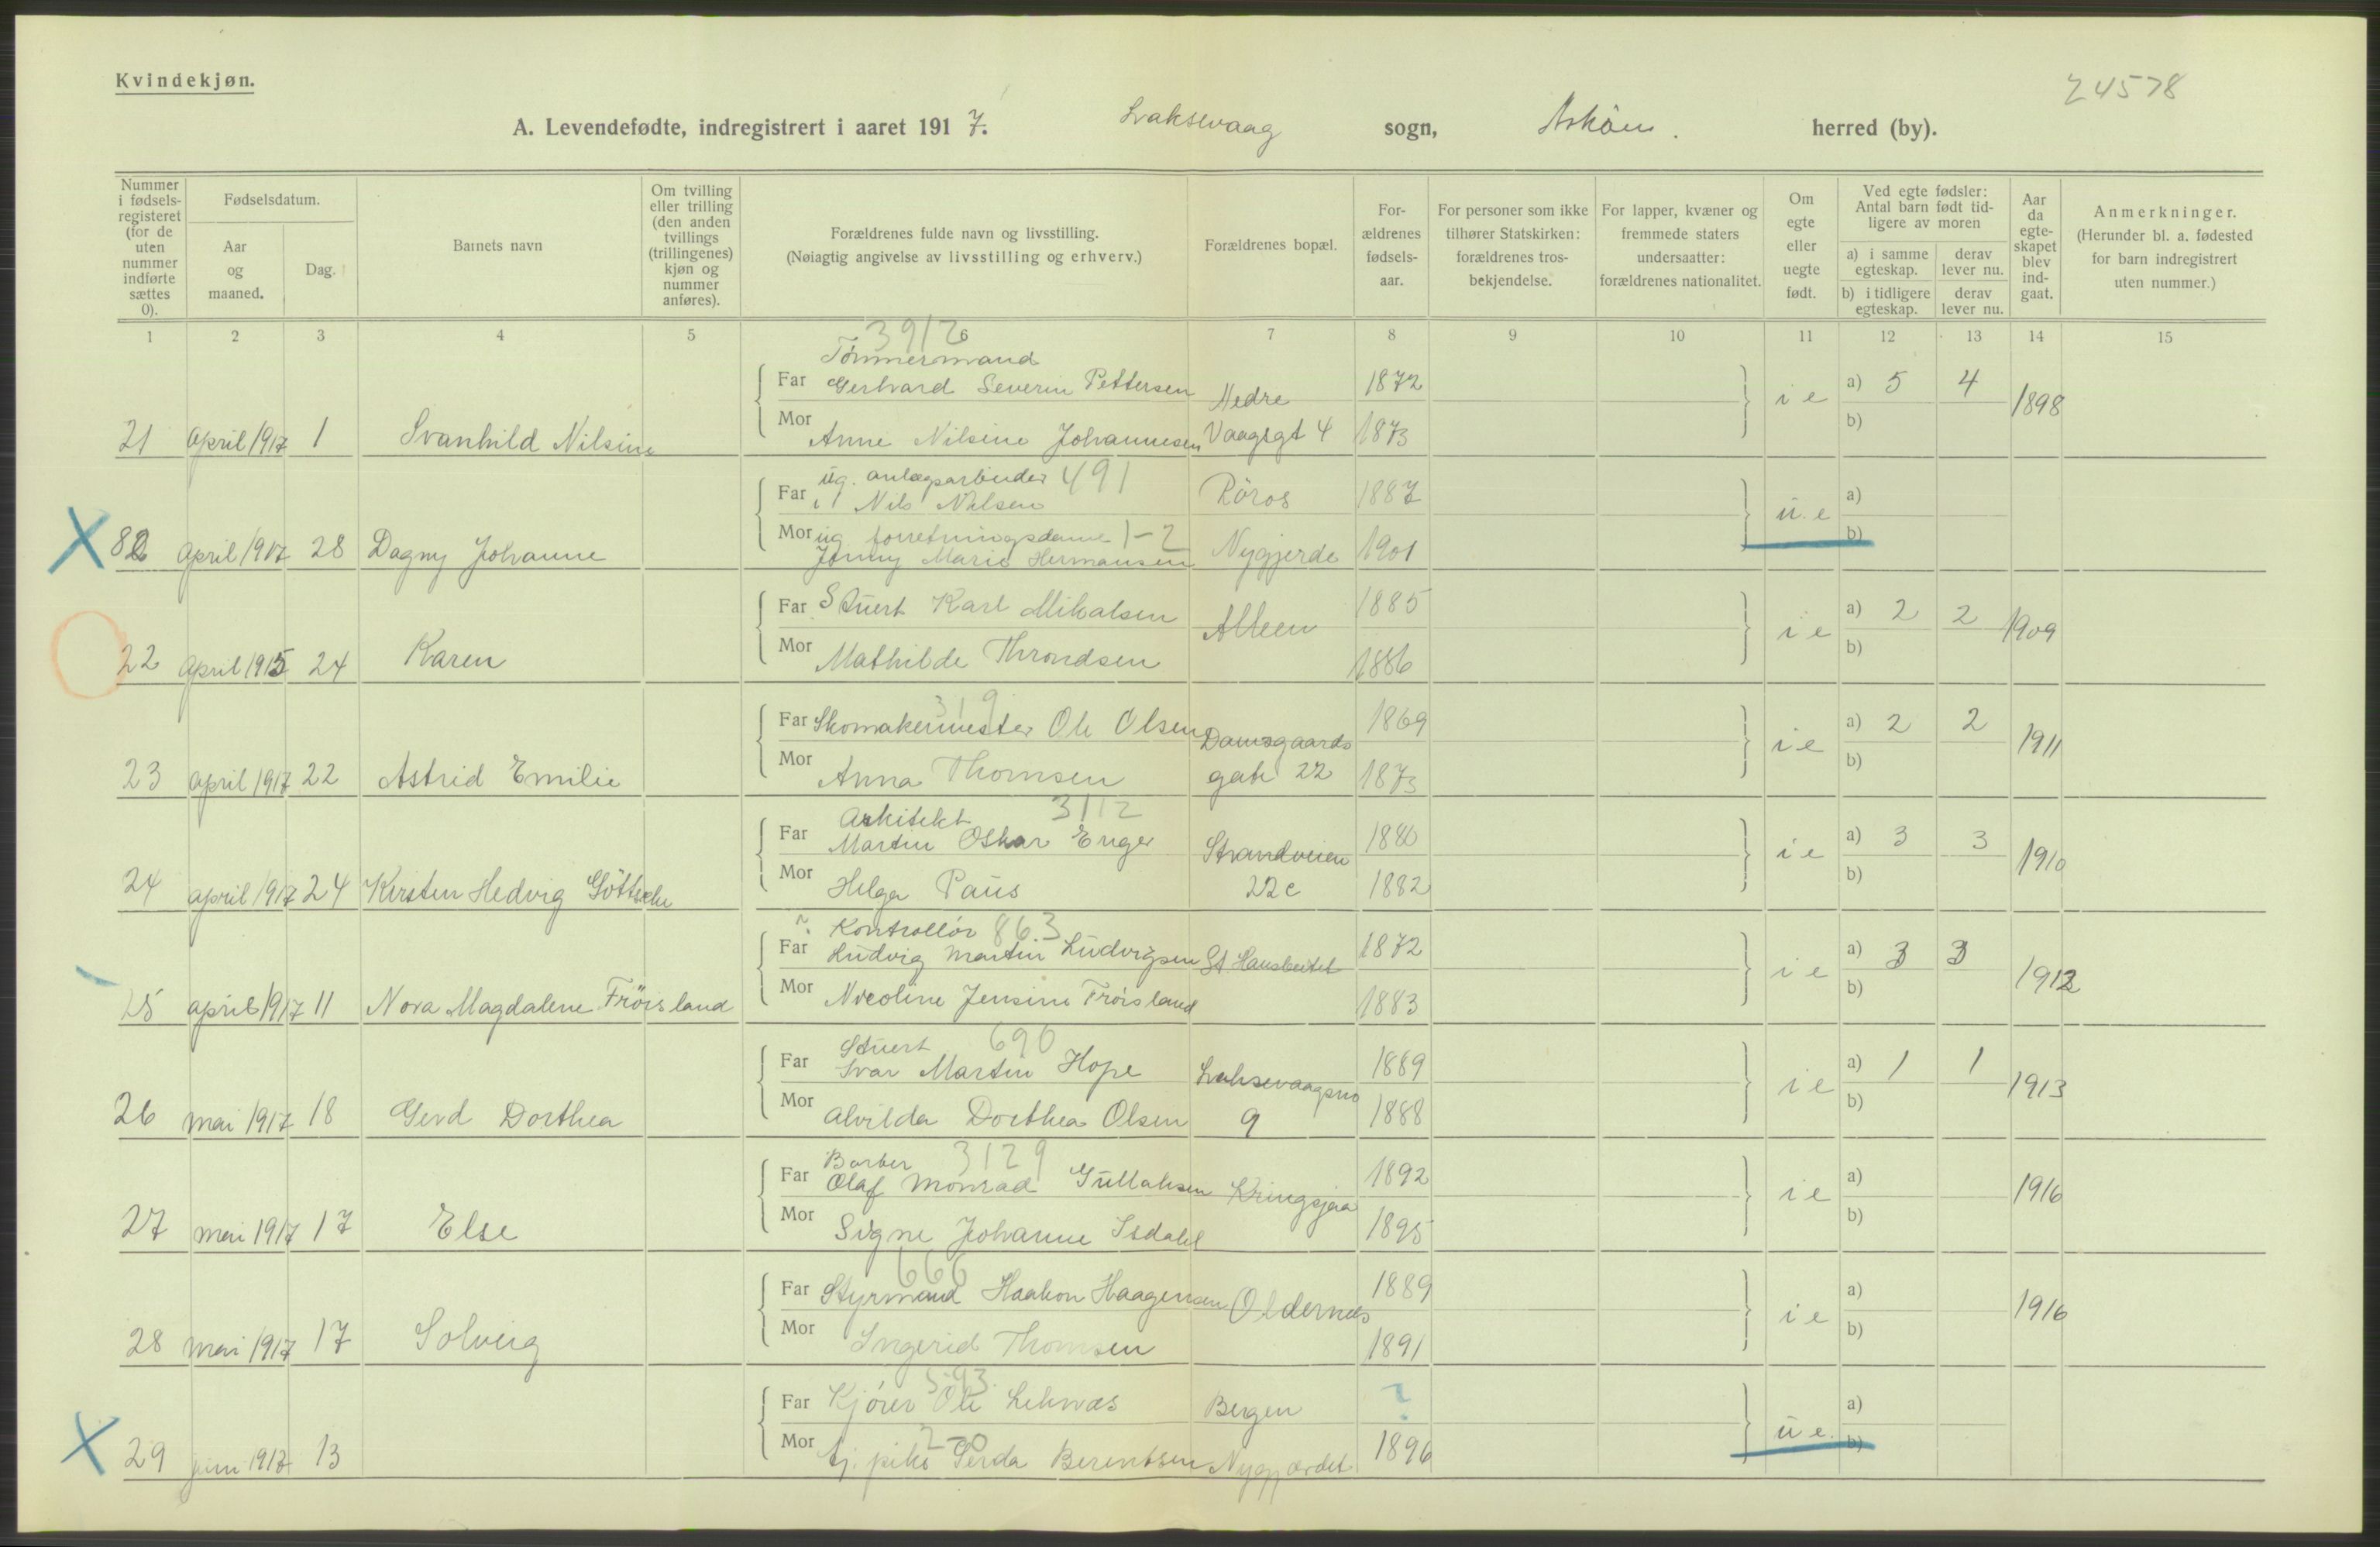 Kvindekjøn.
24578
A. Levendefødte, indregistrert i aaret 1917. Laksevaag sogn, Askøen. herred (by).
Nummer i fødsels-registeret (for de uten nummer indførte sættes 0).
Fødselsdatum.
Aar og maaned.
Dag.
Barnets navn
Om tvilling eller trilling (den anden tvillings (trillingenes) kjøn og nummer anføres).
Forældrenes fulde navn og livsstilling.
(Nøiagtig angivelse av livsstilling og erhverv.)
Forældrenes bopæl.
For-ældrenes fødsels-aar.
For personer som ikke tilhører Statskirken: forældrenes tros-bekjendelse.
For lapper, kvæner og fremmede staters undersaatter: forældrenes nationalitet.
Om egte eller uegte født.
Ved egte fødsler: Antal barn født tid-ligere av moren
a) i samme egteskap.
derav lever nu.
b) i tidligere egteskap.
derav lever nu.
Aar da egte-skapet blev ind-gaat.
Anmerkninger.
(Herunder bl. a. fødested for barn indregistrert uten nummer.)
1 2 3 4 5 6 7 8 9 10 11 12 13 14 15
3912
Tömmermand
Far Gerhard Severin Pettersen Nedre 1872 i e a) 5 4 1898
21 April 1917 1 Svanhild Nilsine Mor Anne Nilsine Johannesen Vaagsgt 4 1873 b)
ug. anlægsarbeider 491
Far Nils Nilsen Röros 1887 u.e a)
82 April 1917 28 Dagny Johanne Mor ug forretningsdame 1-2
Jenny Marie Hermansen Nygjerde 1901 b)
Far Stuert Karl Mikalsen Alleen 1885 i e a) 2 2 1909
22 April 1915 24 Karen Mor Mathilde Throndsen 1886 b)
319
Far Skomakermester Ole Olsen Damsgaards 1869 i e a) 2 2 1911
23 April 1917 22 Astrid Emilie Mor Anna Thomsen gate 22 1873 b)
Arkitekt 3112
Far Martin Oskar Enger Strandveien 1880 i e a) 3 3 1910
24 April 1917 24 Kirsten Hedvig Mor Helga Paus 22c 1882 b)
? Kontrollör 863
Far Ludvig Martin Ludvigsen St Hans 1872 i e a) 3 3 1912
25 april 1917 11 Nora Magdalene Fröisland Mor Nicoline Jensine Fröisland 1883 b)
Stuert 690
Far Ivar Martin Hope Laksevaagsno 1889 i e a) 1 1 1913
26 Mai 1917 18 Gerd Dorthea Mor Alvilda Dorthea Olsen 9 1888 b)
Barber 3129
Far Olaf Monrad Gullaksen Kringsjaa 1892 i e a) 1916
27 Mai 1917 17 Else Mor Signe Johanne Isdahl 1895 b)
666
Far Styrmand Haakon Haagensen Oldernes 1889 i e a) 1916
28 Mai 1917 17 Solveig Mor Ingerid Thomsen 1891 b)
593
Far Kjörer Ole Leknæs Bergen ? u e. a)
2-0
29 juni 1917 13 Mor tj. pike Gerda Berentsen Nygjærdet 1896 b)